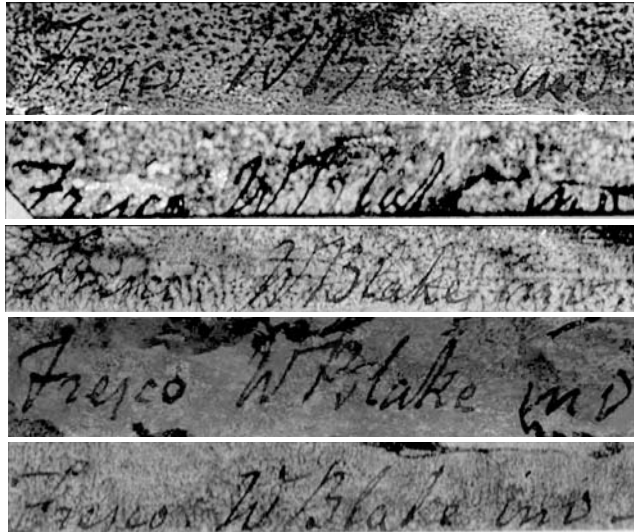 Fresco W Blake inv
Fresco W Blake inv
Fresco W Blake inv
Fresco W Blake inv
Fresco W Blake inv